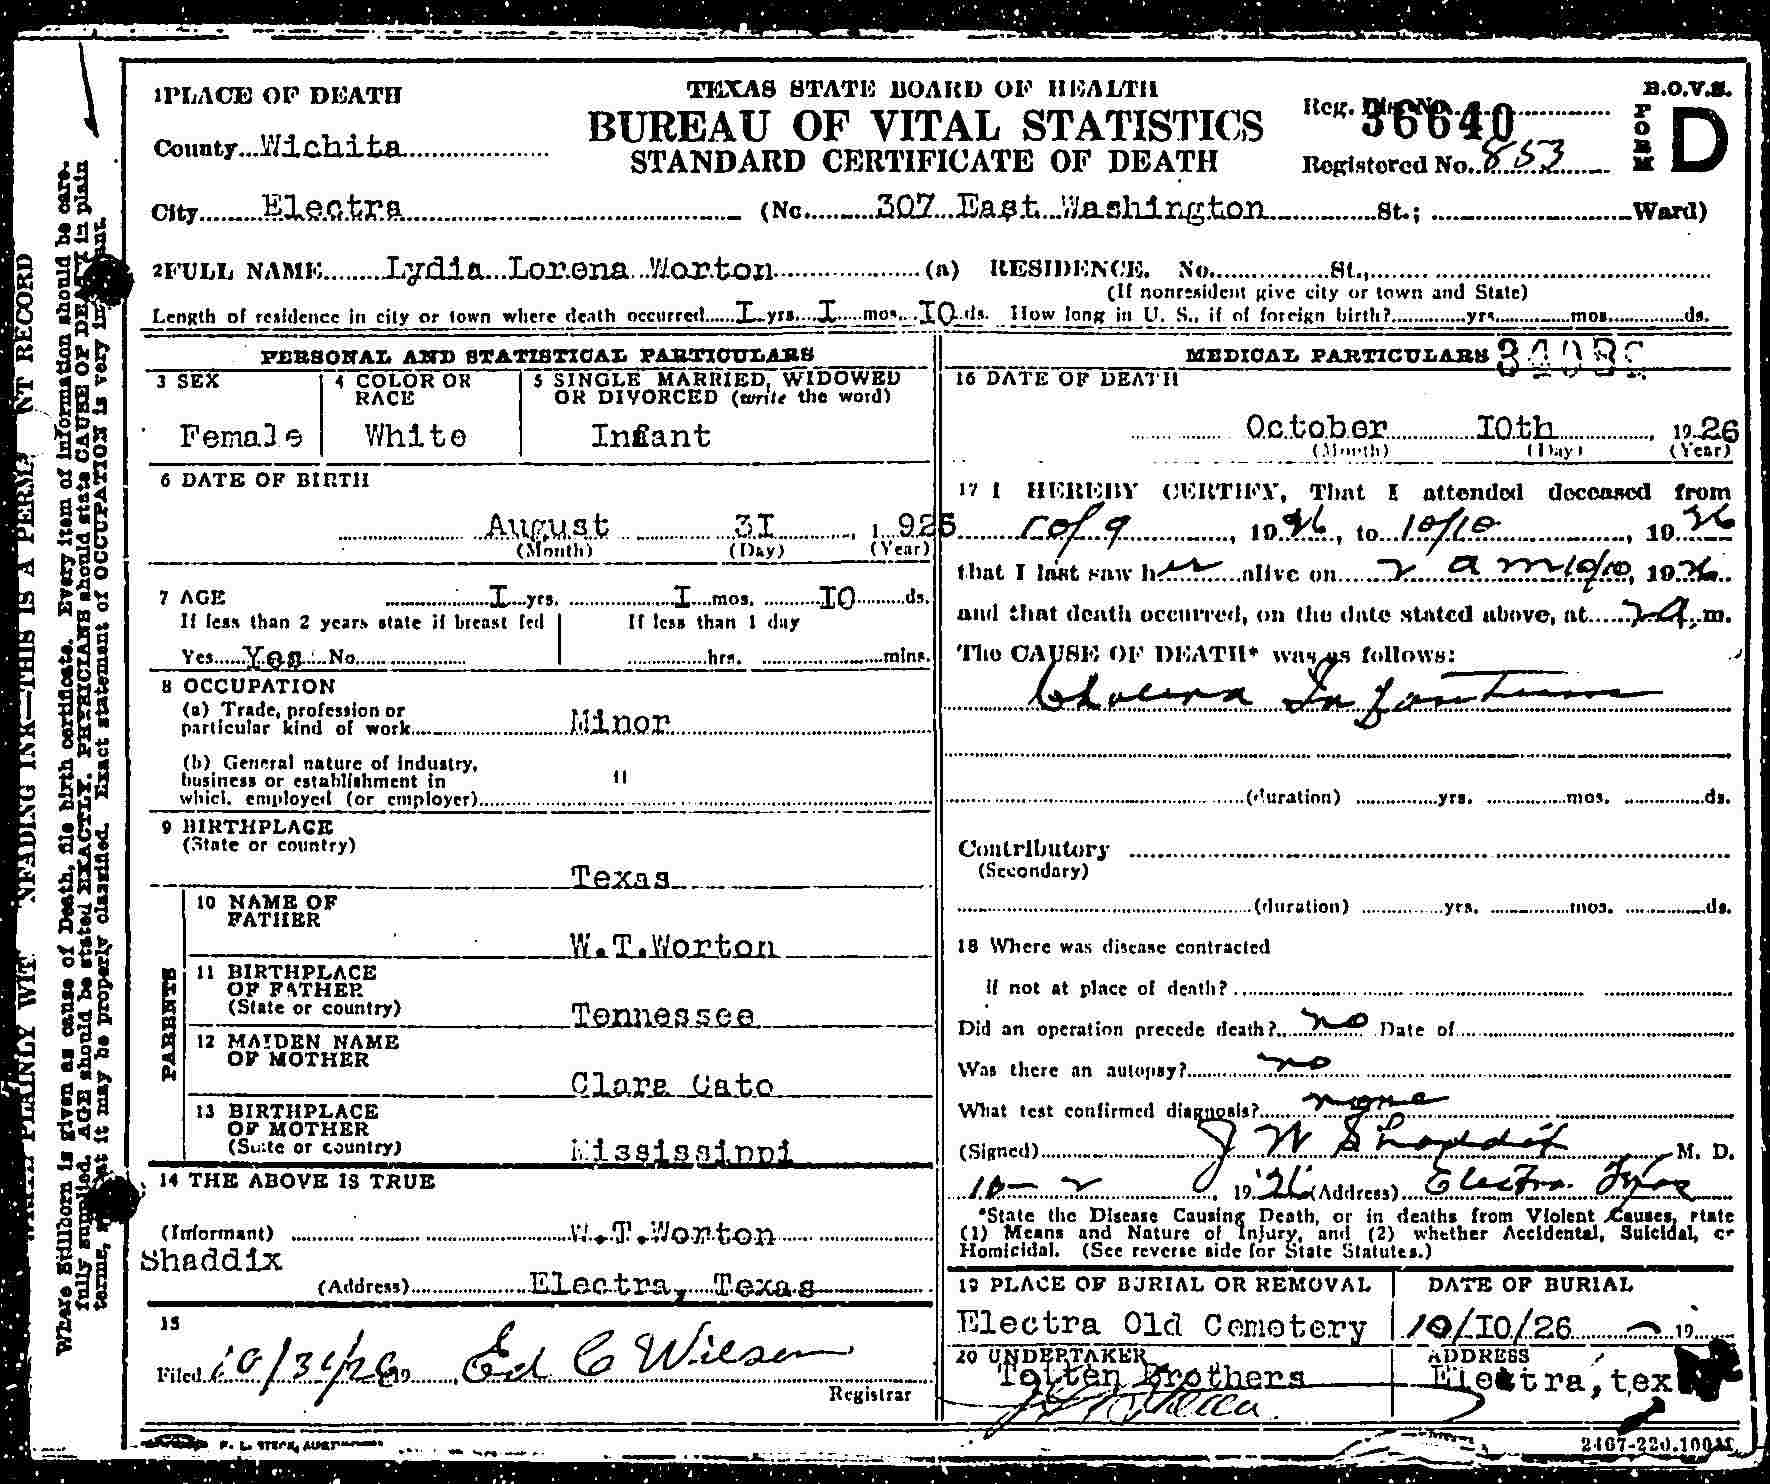 1 PLACE OF DEATH
TEXAS STATE BOARD OF HEALTH
BUREAU OF VITAL STATISTICS
STANDARD CERTIFICATE OF DEATH
B.O.V.S.
FORM D
Reg. Dis. No.
36640
Registered No. 853
County Wichita
City Electra (No. 307 East Washington St.; Ward)
2 FULL NAME Lydia Lorena Worton (a) RESIDENCE. No. St.,
(If nonresident give city or town and State)
Length of residence in city or town where death occurred I yrs. I mos. IO ds. How long in U. S., if of foreign birth? yrs. mos. ds.
PERSONAL AND STATISTICAL PARTICULARS
3 SEX
Female
4 COLOR OR RACE
White
5 SINGLE MARRIED, WIDOWED
OR DIVORCED (write the word)
Infant
6 DATE OF BIRTH
August 3I, 1925
(Month) (Day) (Year)
7 AGE I yrs. I mos. IO ds.
If less than 2 years state if breast fed
If less than 1 day
Yes Yes No
hrs. mins.
8 OCCUPATION
(a) Trade, profession or
particular kind of work Minor
(b) General nature of industry,
business or establishment in "
which employed (or employer)
9 BIRTHPLACE
(State or country)
Texas
PARENTS
10 NAME OF
FATHER
W.T.Worton
11 BIRTHPLACE
OF FATHER
(State or country)
Tennessee
12 MAIDEN NAME
OF MOTHER
Clara Cato
13 BIRTHPLACE
OF MOTHER
(State or country)
Mississippi
14 THE ABOVE IS TRUE
(Informant) W.T.Worton
Shaddix
(Address) Electra, Texas
15
Filed 10/31/26 19 Ed C Wilson
Registrar
MEDICAL PARTICULARS
16 DATE OF DEATH
October IOth, 1926
(Month) (Day) (Year)
17 I HEREBY CERTIFY, That I attended deceased from
1926, to 10/10, 1926
that I last saw her alive on 2 am 10/10, 1926
and that death occurred, on the date stated above, at 2 a. m.
The CAUSE OF DEATH* was as follows:
Cholera Infantum
(duration) yrs. mos. ds.
Contributory
(Secondary)
(duration) yrs. mos. ds.
18 Where was disease contracted
if not at place of death?
Did an operation precede death? no Date of
Was there an autopsy? no
What test confirmed diagnosis? none
(Signed) J W Shaddix M. D.
, 1926 (Address) Electra Texas
*State the Disease Causing Death, or in deaths from Violent Causes, state
(1) Means and Nature of Injury, and (2) whether Accidental, Suicidal, or
Homicidal. (See reverse side for State Statutes.)
19 PLACE OF BURIAL OR REMOVAL
Electra Old Cemetery
DATE OF BURIAL
10/IO/26 19
20 UNDERTAKER
Totten Brothers
ADDRESS
Electra, tex
2467-220.100M